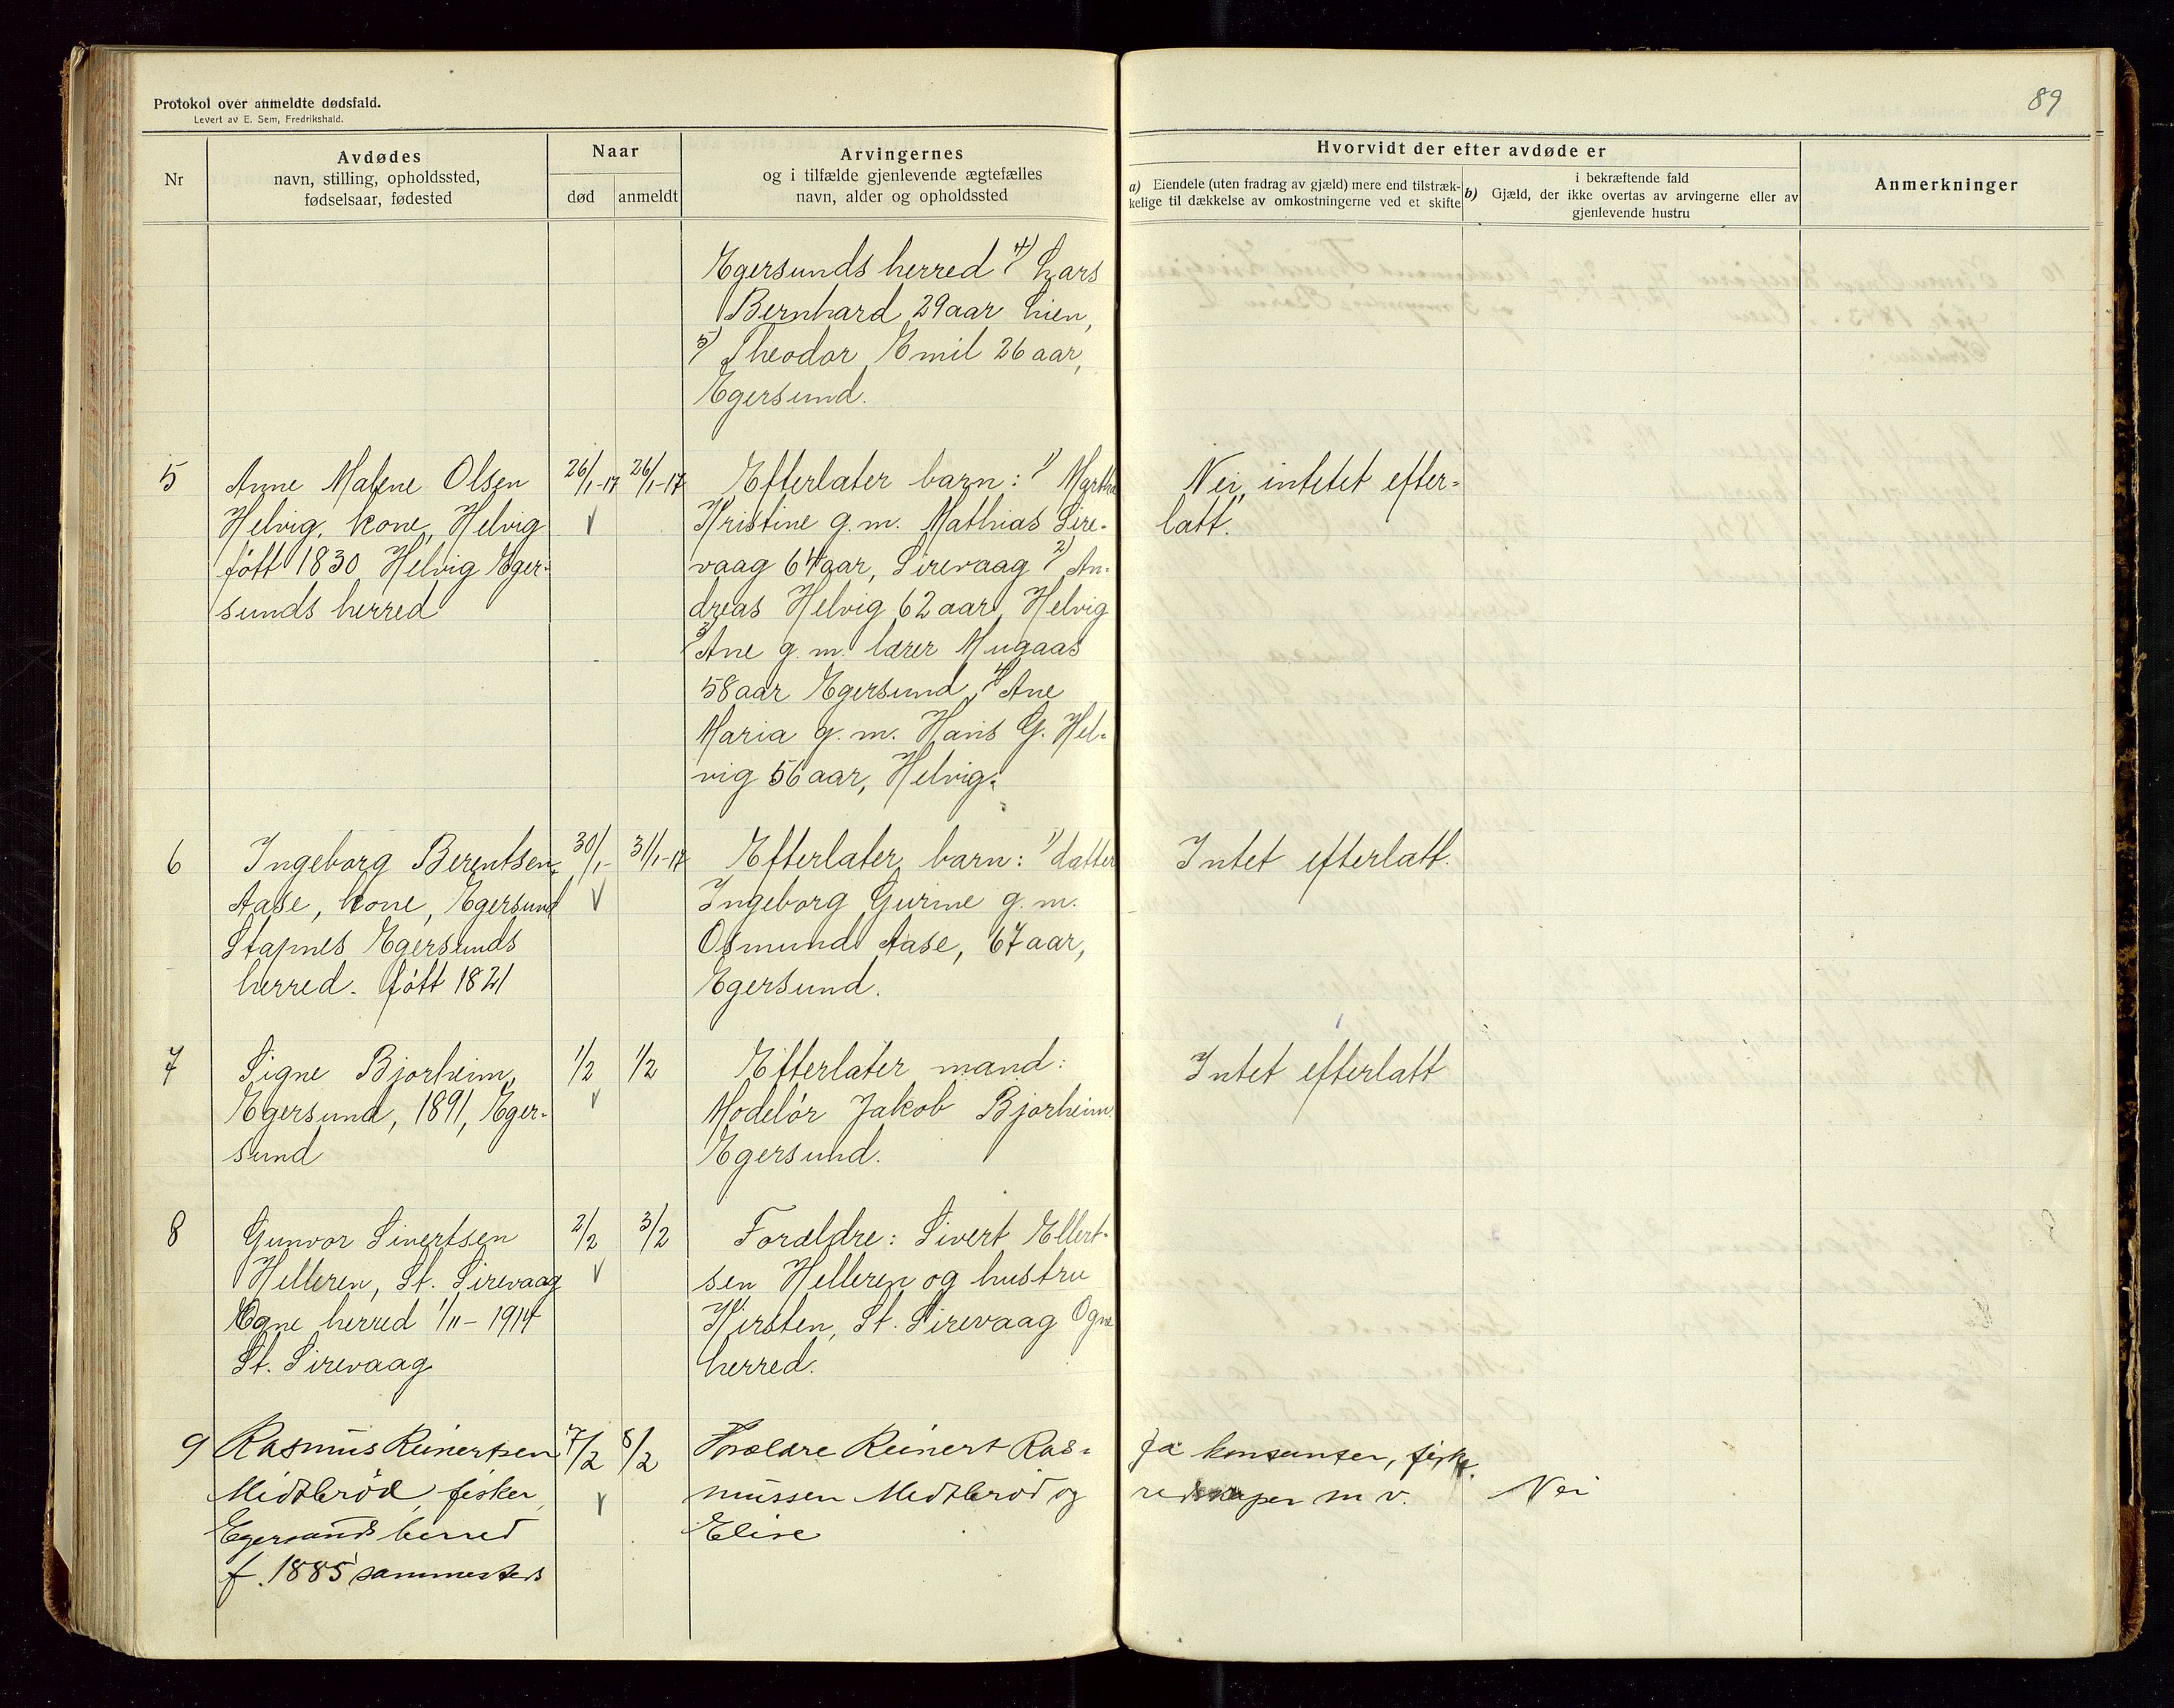 Protokol over anmeldte dødsfald.
Levert av E. Sem, Fredrikshald.
89
Nr
Avdødes
navn, stilling, opholdssted,
fødselsaar, fødested
Naar
død
anmeldt
Arvingernes
og i tilfælde gjenlevende ægtefælles
navn, alder og opholdssted
Hvorvidt der efter avdøde er
a) Eiendele (uten fradrag av gjæld) mere end tilstræk-
kelige til dækkelse av omkostningerne ved et skifte
i bekræftende fald
b) Gjæld, der ikke overtas av arvingerne eller av
gjenlevende hustru
Anmerkninger
Egersunds herred 4) Lars
Bernhard 29 aar Lien,
5) Theodor Emil 26 aar,
Egersund.
5
Anne Malene Olsen
Helvig, kone, Helvig
føtt 1830 Helvig Eger-
sunds herred
26/1-17
26/1-17
Efterlater barn: 1) Marthe
Kristine g.m. Mathias Sire-
vaag 64 aar, Sirevaag 2) An-
dreas Helvig 62 aar, Helvig
3) Ane g.m. lærer Mugaas
58 aar Egersund, 4) Ane
Maria g.m. Hans G. Hel-
vig 56 aar, Helvig.
Nei, intetet efter-
latt.
6
Ingeborg Berentsen
Aase, kone, Egersund
Stapnes Egersunds
herred. føtt 1821
30/1-
31/1-17
Efterlater barn: 1) datter
Ingeborg Gurine g.m.
Osmund Aase, 67 aar,
Egersund.
Intet efterlatt.
7
Signe Bjorheim,
Egersund, 1891, Eger-
sund
1/2
1/2
Efterlater mand:
Modelør Jakob Bjorheim.
Egersund.
Intet efterlatt
8
Gunvor Sivertsen
Helleren, St. Sirevaag
Ogne herred 1/11 - 1914
St. Sirevaag
2/2
3/2
Forældre: Sivert Ellert-
sen Helleren og hustru
Kirsten, St. Sirevaag Ogne
herred.
9
Rasmus Reinertsen
Midtbrød, fisker,
Egersunds herred
f. 1885 sammesteds
7/2
8/2
Forældre Reinert Ras-
mussen Midtbrød og
Elise
Ja fiske-
redskaper m v.
Nei